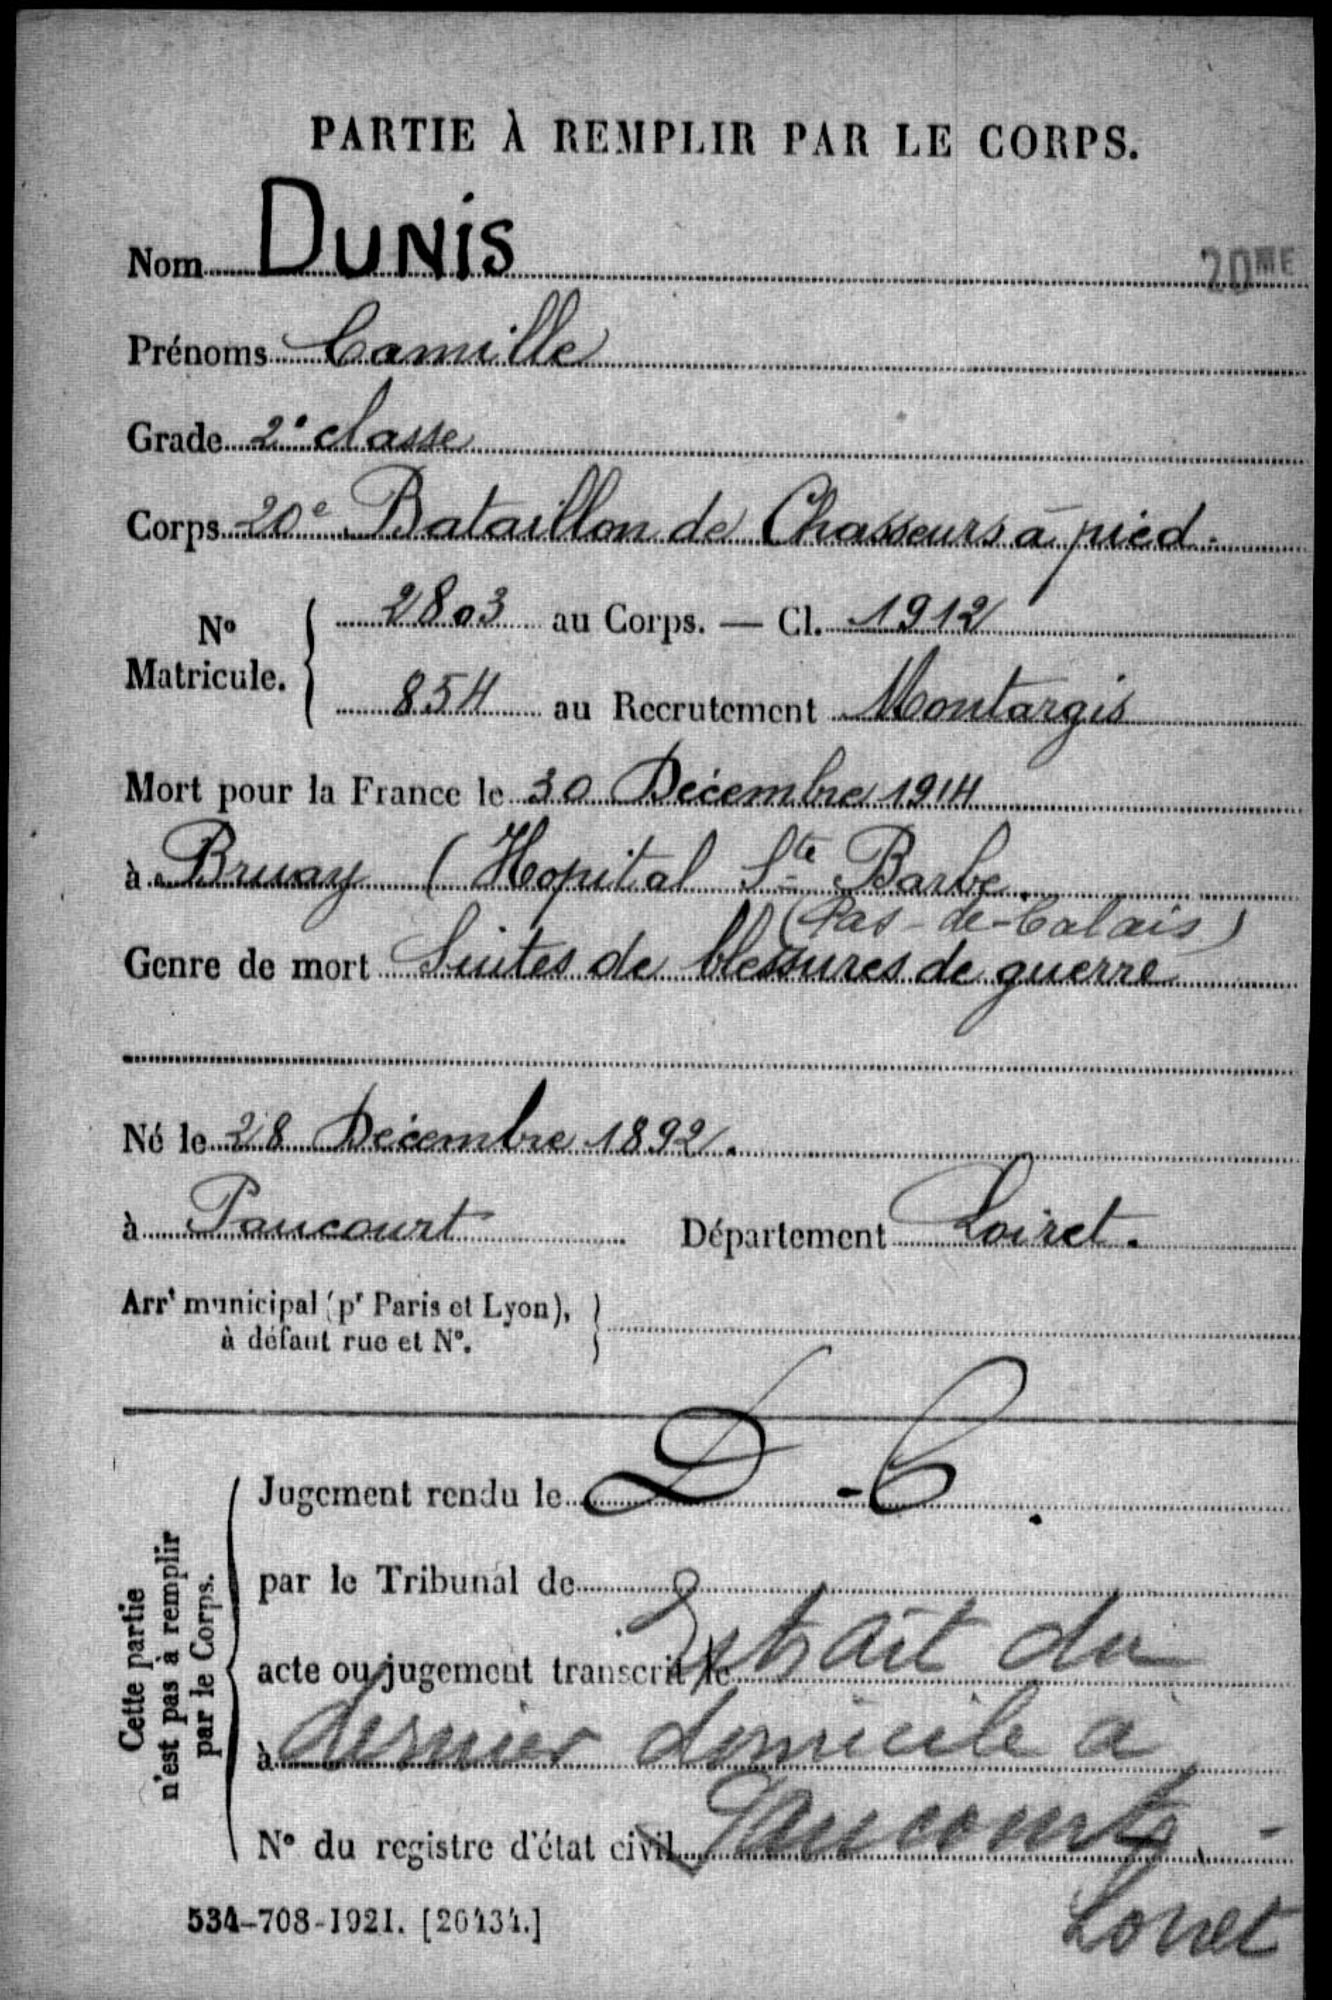 PARTIE À REMPLIR PAR LE CORPS.
Nom DUNIS 20ME
Prénoms Camille
Grade 2e classe
Corps 20e Bataillon de Chasseurs à pied.
N° Matricule. 2803 au Corps. — Cl. 1912
854 au Recrutement Montargis
Mort pour la France le 30 Décembre 1914
à Bruay (Hopital Ste Barbe
(Pas-de-Calais)
Genre de mort Suites de blessures de guerre
Né le 28 Décembre 1892.
à Paucourt Département Loiret.
Arrt municipal (pr Paris et Lyon),
à défaut rue et N°.
Cette partie
n'est pas à remplir
par le Corps.
Jugement rendu le D-C.
par le Tribunal de
acte ou jugement transcrit le Extrait du
à dernier domicile à
N° du registre d'état civil Paucourt. -
Loiret
534-708-1921. [26434.]